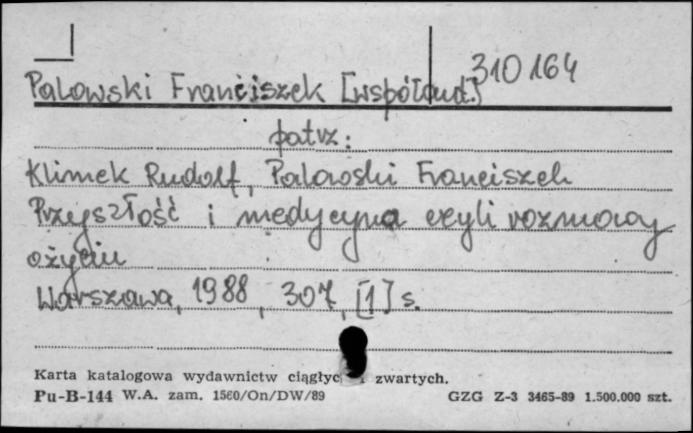 310164
Palowski Franciszek [współaut.]
patrz:
Klimek Rudolf, Palowski Franciszek
Przyszłość i medycyna czyli rozmowy
o życiu
Warszawa, 1988, 307, [1] s.
Karta katalogowa wydawnictw ciągłyc zwartych.
Pu-B-144 W.A. zam. 1560/On/DW/89 GZG Z-3 3465-89 1.500.000 szt.